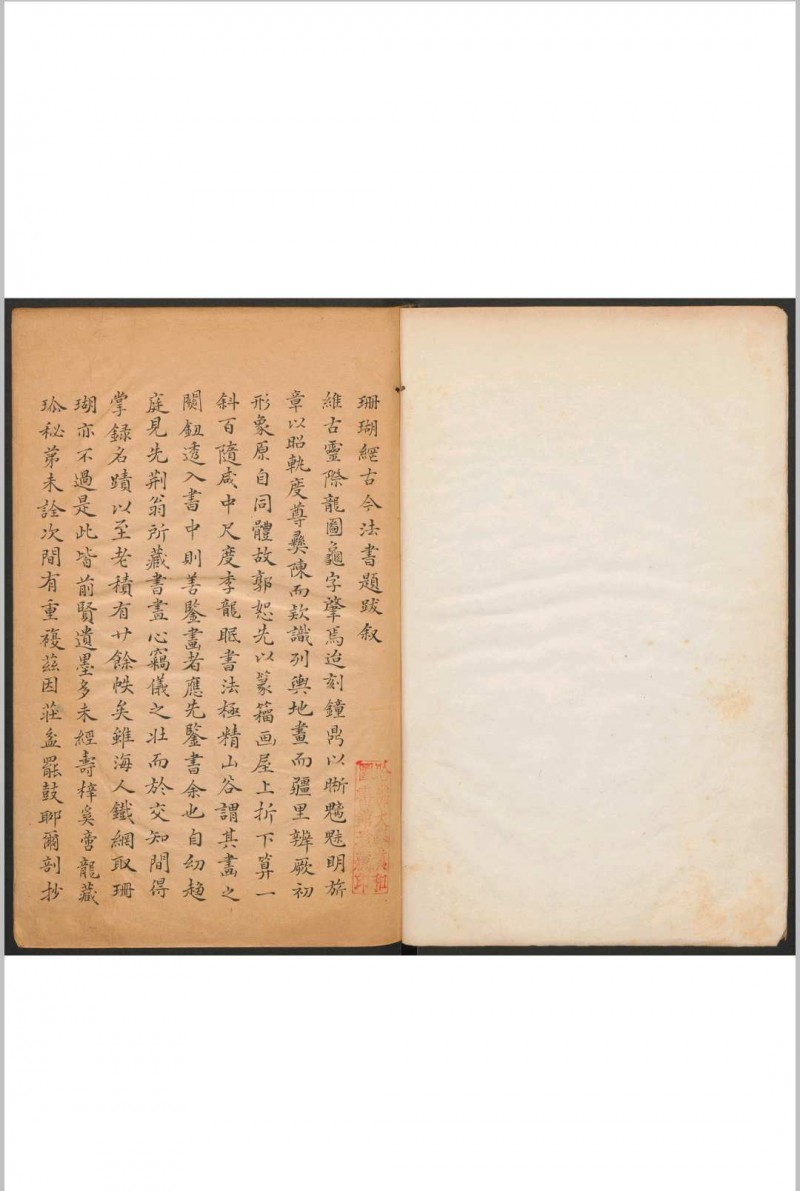 珊瑚網古今法書題跋叙
維古靈際龍圖龜字肇焉迨刻鐘鼎以晰魑魅明旂
章以昭軌度尊彝陳而欵識列輿地畫而疆里辨厥初
形象原自同體故郭恕先以篆籀画屋上折下算一
斜百隨咸中尺度李龍眠書法極精山谷謂其畫之
關鈕透入書中則善鑒畫者應先鑒書余也自幼趋
庭見先荆翁所藏書畫心竊儀之壯而於交知間得
掌録名蹟以至老積有廿餘帙矣雖海人鐵網取珊
瑚亦不過是此皆前賢遺墨多未經壽梓奚啻龍藏
珍秘第未詮次間有重複茲因莊盆罷鼓聊爾剖抄